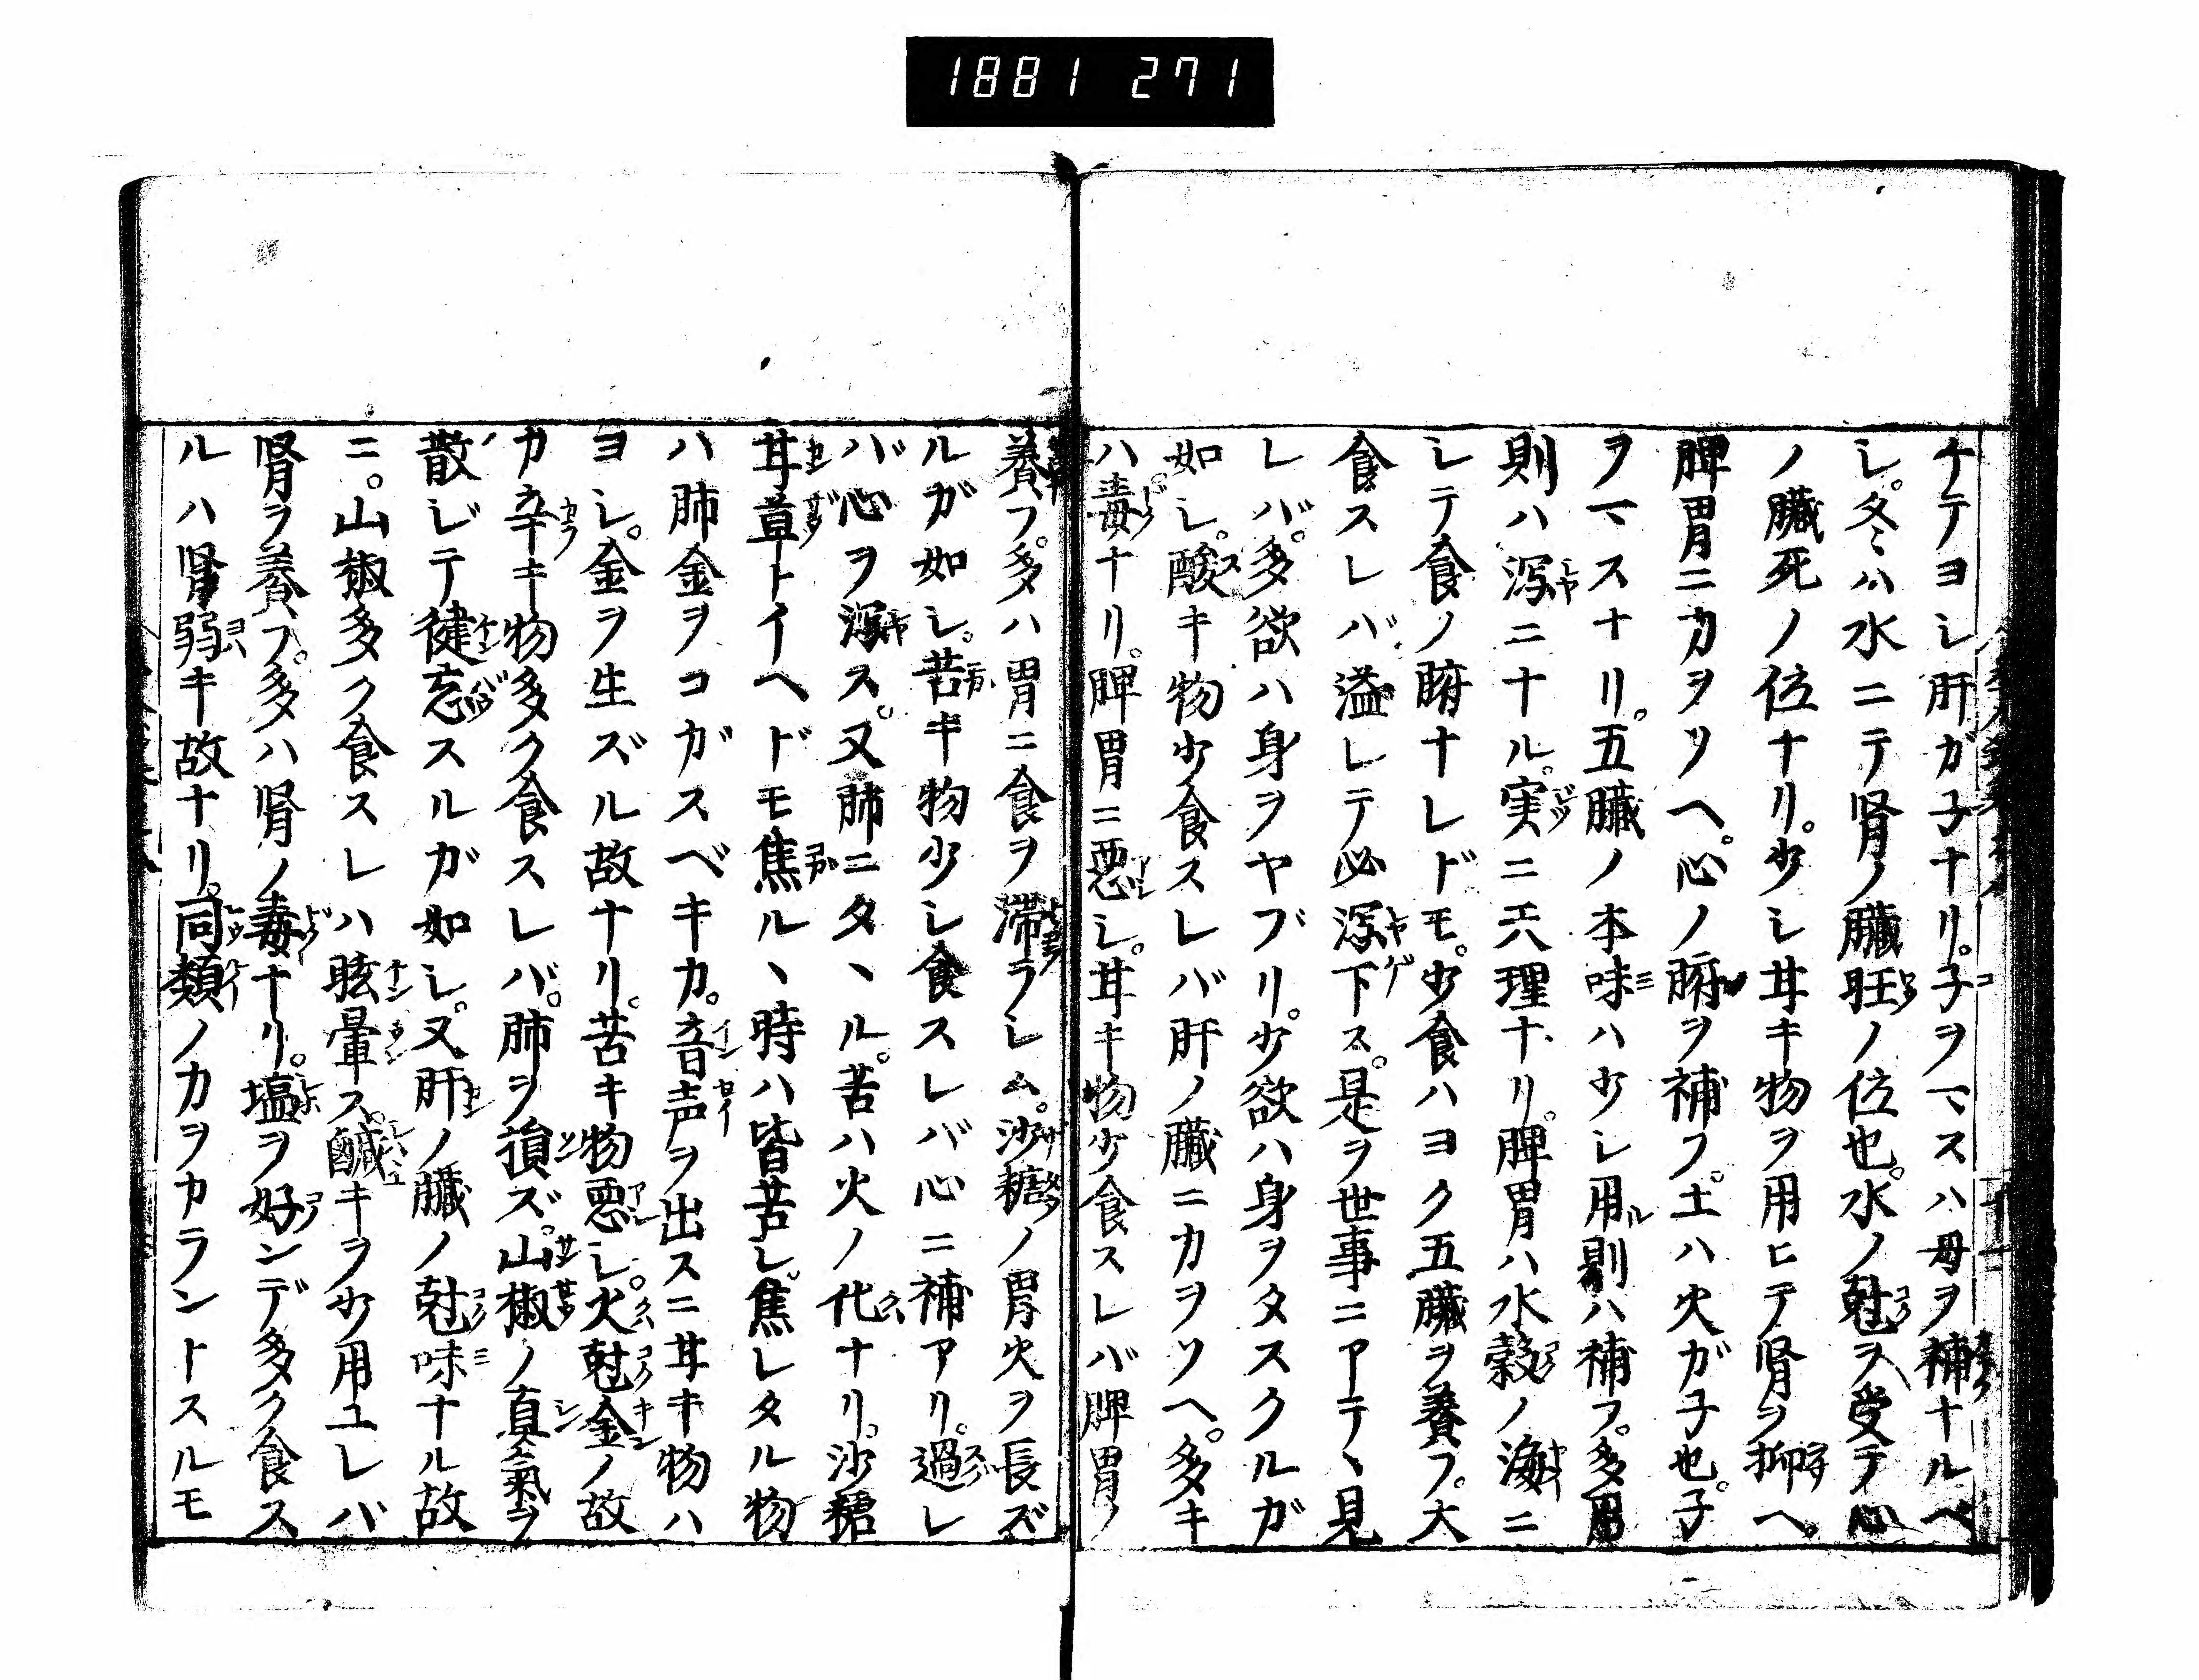 1881 271
ケテヨシ肝ガ子ナリ。子ヲマスハ母ヲ補ナルベ
シ。冬ハ水ニテ腎ノ臓旺ノ位也。水ノ尅ヲ受テ心
ノ臓死ノ位ナリ。少シ耳キ物ヲ用ヒテ腎ヲ抑ヘ。
脾胃ニ力ヲソヘ。心ノ腑ヲ補フ。土ハ火ガ子也。子
ヲマスナリ。五臓ノ本味ハ少シ用ル則ハ補フ。多用
則ハ瀉ニナル。実ニ天理ナリ。脾胃ハ水穀ノ海ニ
シテ食ノ腑ナレドモ。少食ハヨク五臓ヲ養フ。大
食スレバ溢レテ必瀉下ス。是ヲ世事ニアテヽ見
レバ。多欲ハ身ヲヤブリ。少欲ハ身ヲタスクルガ
如シ。酸キ物少食スレバ肝ノ臓ニ力ヲソヘ。多キ
ハ毒ナリ。脾胃ニ悪シ。甘キ物少食スレバ脾胃ノ
養フ。多ハ胃ニ食ヲ滞ラシム。沙糖ノ胃火ヲ長ズ
ルガ如シ。苦キ物少シ食スレバ心ニ補アリ。過レ
バ心ヲ瀉ス。又肺ニタヽル。苦ハ火ノ化ナリ。沙糖
甘草トイヘドモ焦ルヽ時ハ皆苦シ。焦レタル物
ハ肺金ヲコガスベキカ。音声ヲ出スニ甘キ物ハ
ヨシ。金ヲ生ズル故ナリ。苦キ物悪シ。火尅金ノ故
カ辛キ物多ク食スレバ。肺ヲ損ズ。山椒ノ真氣ヲ
散ジテ健忘スルガ如シ。又肝ノ臓ノ尅味ナル故
ニ。山椒多ク食スレハ眩暈ス。鹹キヲ少用ユレバ
腎ヲ養フ。多ハ腎ノ毒ナリ。塩ヲ好ンデ多ク食ス
ルハ腎弱キ故ナリ。同類ノカヲカラントスルモ